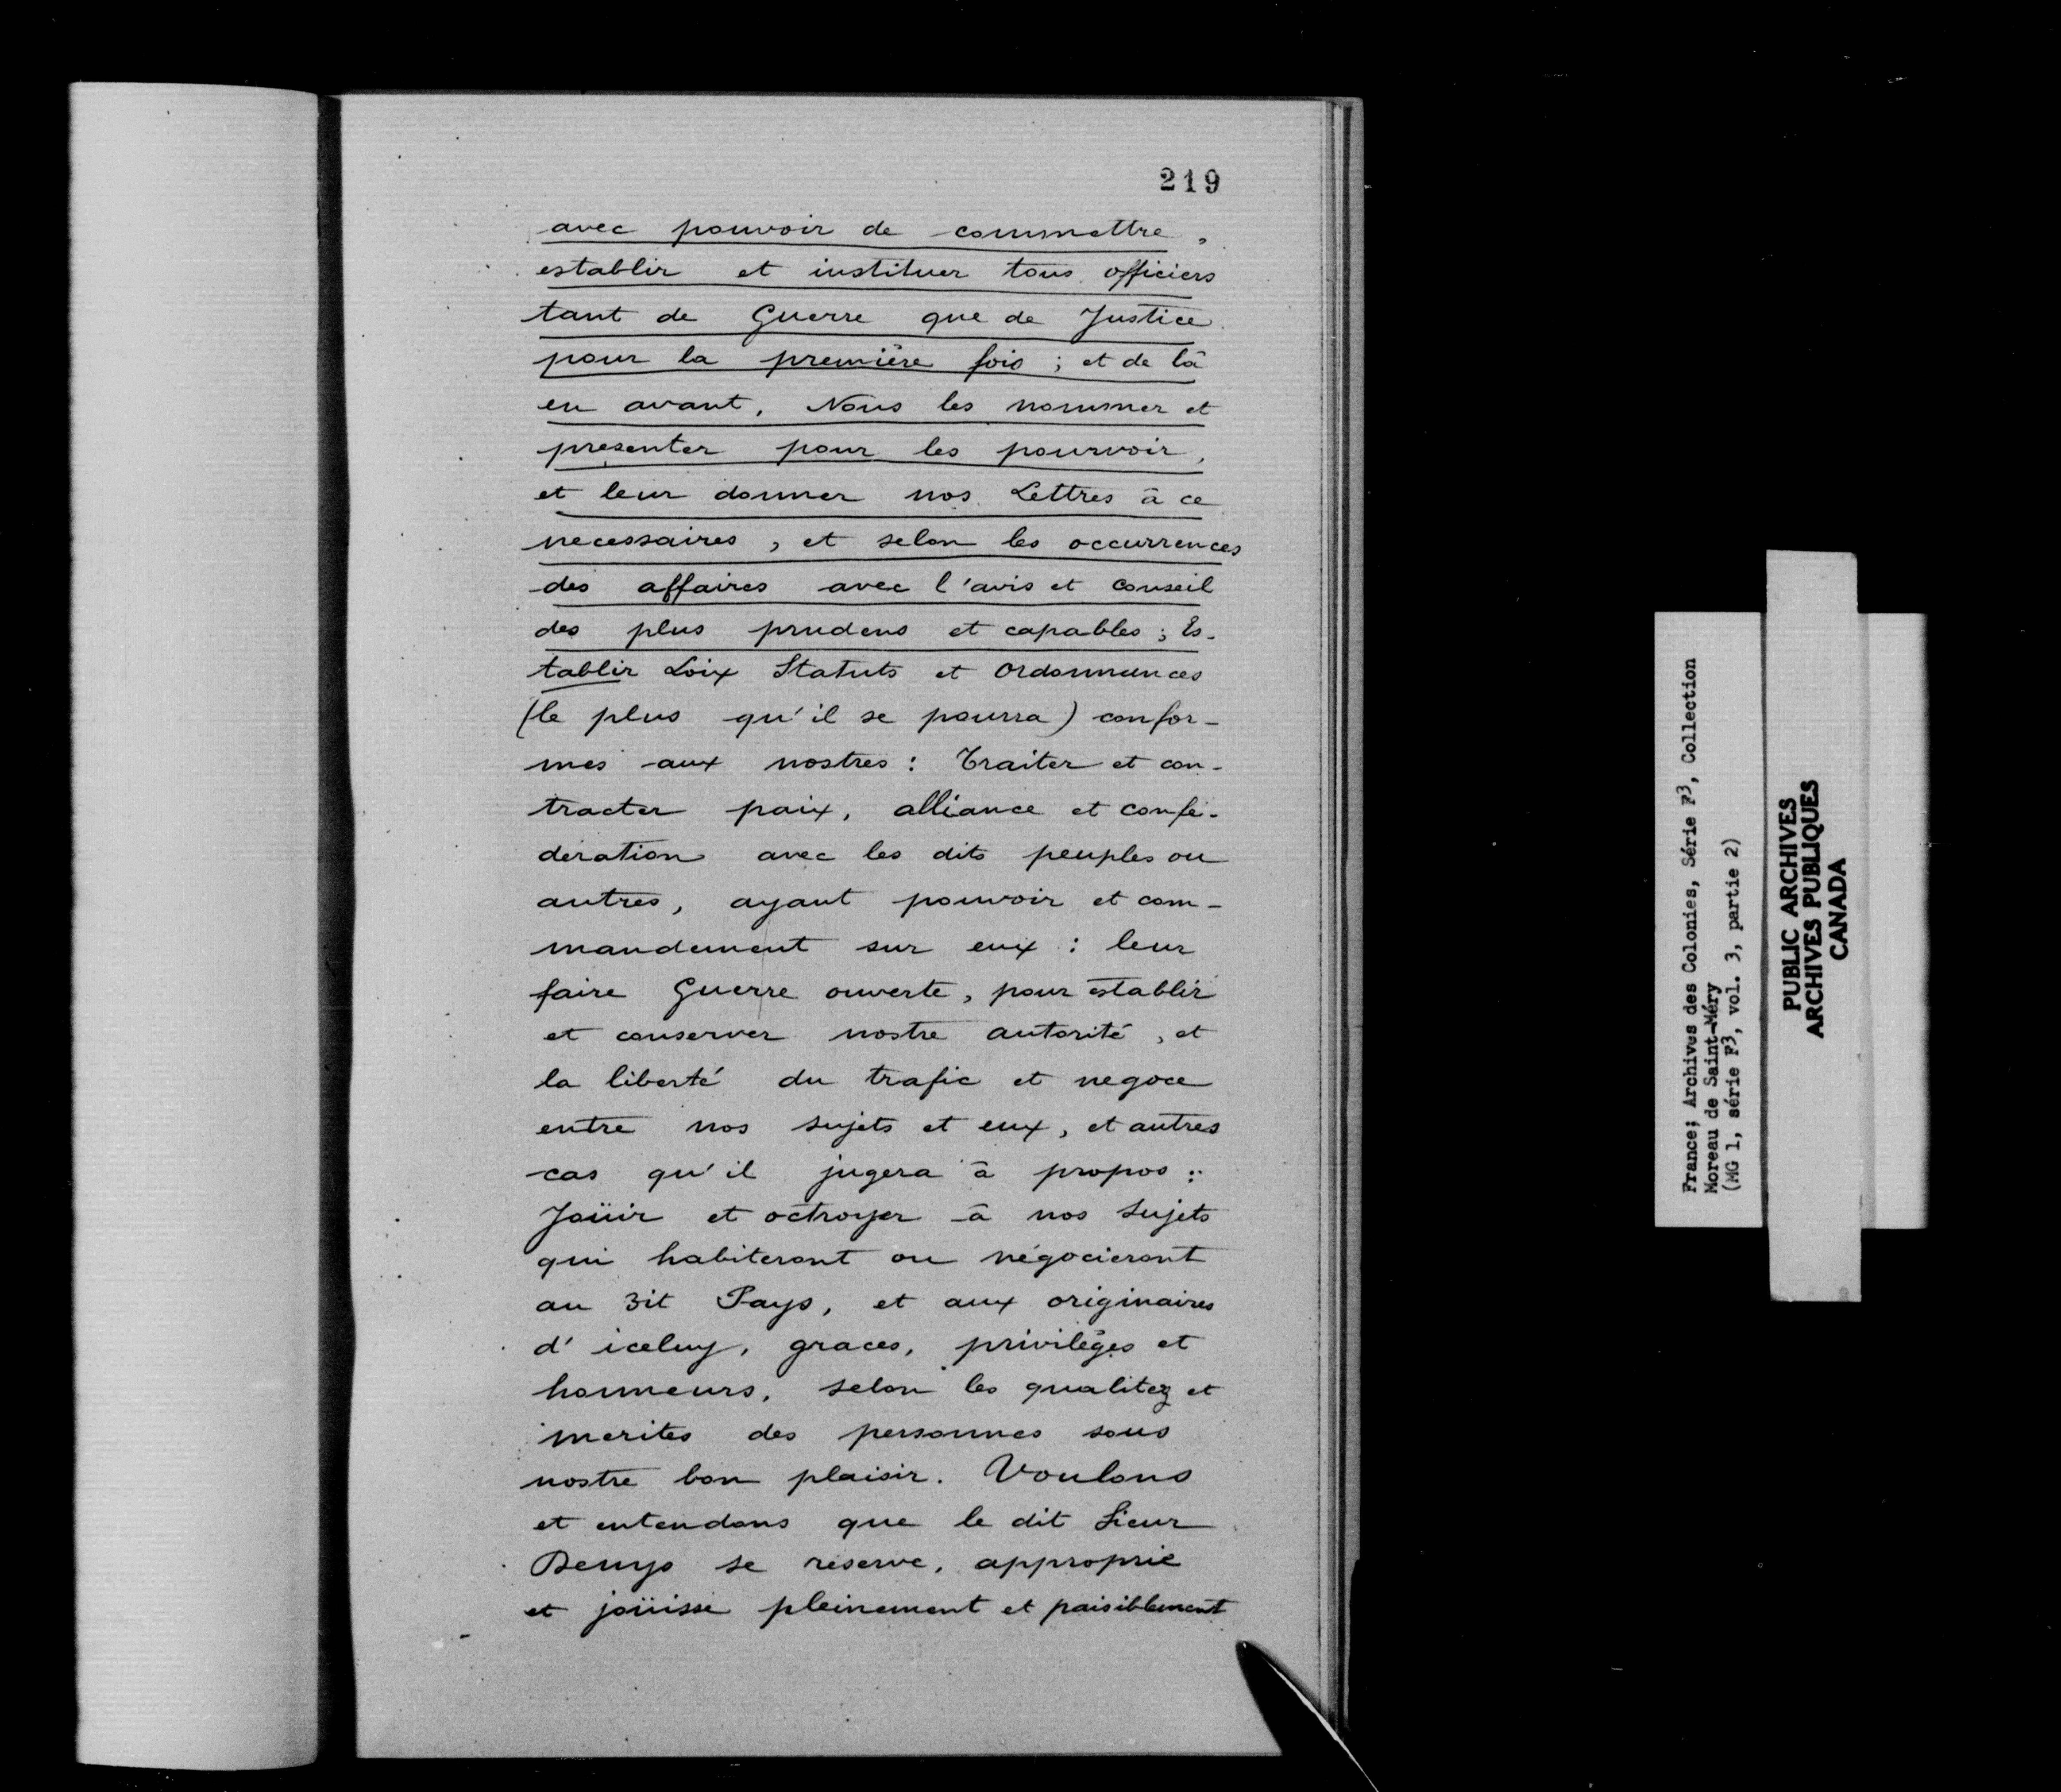 219
avec pouvoir de commettre,
establir et instituer tous officiers
tant de Guerre que de Justice
pour la première fois ; et de là
en avant, Nous les nommer et
presenter pour les pourvoir,
et leur donner nos Lettres à ce
necessaires, et selon les occurrences
des affaires avec l'avis et conseil
des plus prudens et capables ; Es-
tablir Loix Statuts et Ordonnances
(le plus qu'il se pourra) confor-
mes aux nostres : Traiter et con-
tracter paix, alliance et confé-
deration avec les dits peuples ou
autres, ayant pouvoir et com-
mandement sur eux : leur
faire Guerre ouverte, pour establir
et conserver nostre autorité, et
la liberté du trafic et negoce
entre nos sujets et eux, et autres
cas qu'il jugera à propos :
Joüir et octroyer à nos Sujets
qui habiteront ou négocieront
au dit Pays, et aux originaires
d'iceluy, graces, privilèges et
honneurs, selon les qualitez et
merites des personnes sous
nostre bon plaisir. Voulons
et entendons que le dit Sieur
Denys se réserve, approprie
et joüisse pleinement et paisiblement
France; Archives des Colonies, Série F3, Collection
Moreau de Saint-Méry
(MG 1, série F3, vol. 3, partie 2)
PUBLIC ARCHIVES
ARCHIVES PUBLIQUES
CANADA